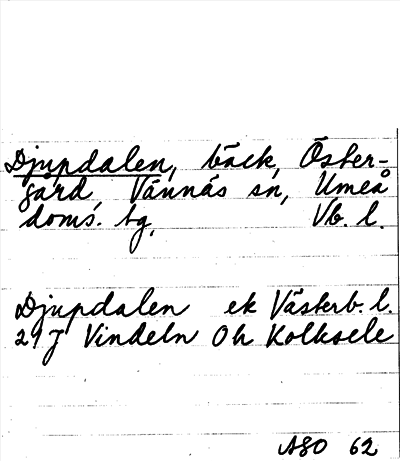 Djupdalen, bäck, Öster-
gård, Vännäs sn, Umeå
doms. tg, Vb. l.
Djupdalen ek Västerb. l.
29 J Vindeln Oh Kolksele
ASO 62